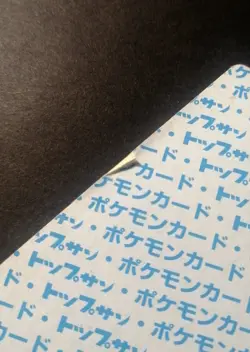 トップサン・
ポケモンカード・
トップサン・
・ポケモンカード・
トップサン・ポケモンカード
カード・トップサン・
・ポケモンカード
トップサン・ポケモンカード
ード・トップサン・